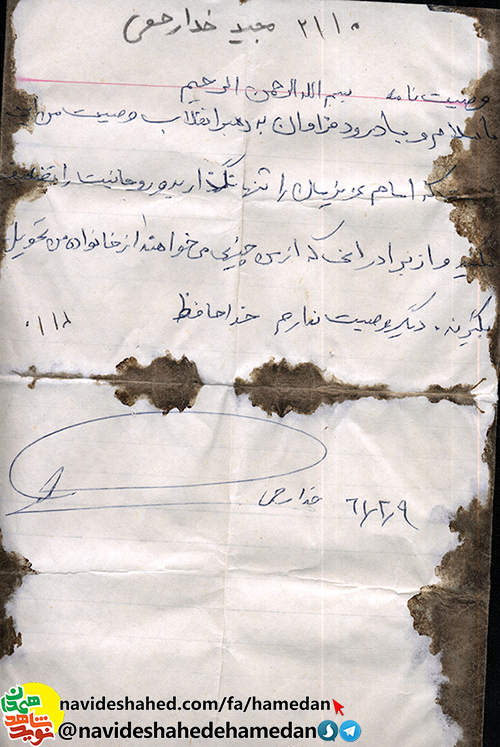 ۲۱۱۰ مجید خدارحمی
وصیت نامه بسم الله الرحمن الرحیم
با سلام و با درود فراوان به رهبر انقلاب وصیت من
که امام عزیزمان را تنها نگذارید و روحانیت را
کنید و از برادرانی که از من چیزی می‌خواهند از خانواده من تحویل
بگیرند. دیگر وصیت ندارم خداحافظ
خدارحمی ۶۱/۲/۹
navideshahed.com/fa/hamedan
@navideshahedehamedan
نوید شاهد
همدان